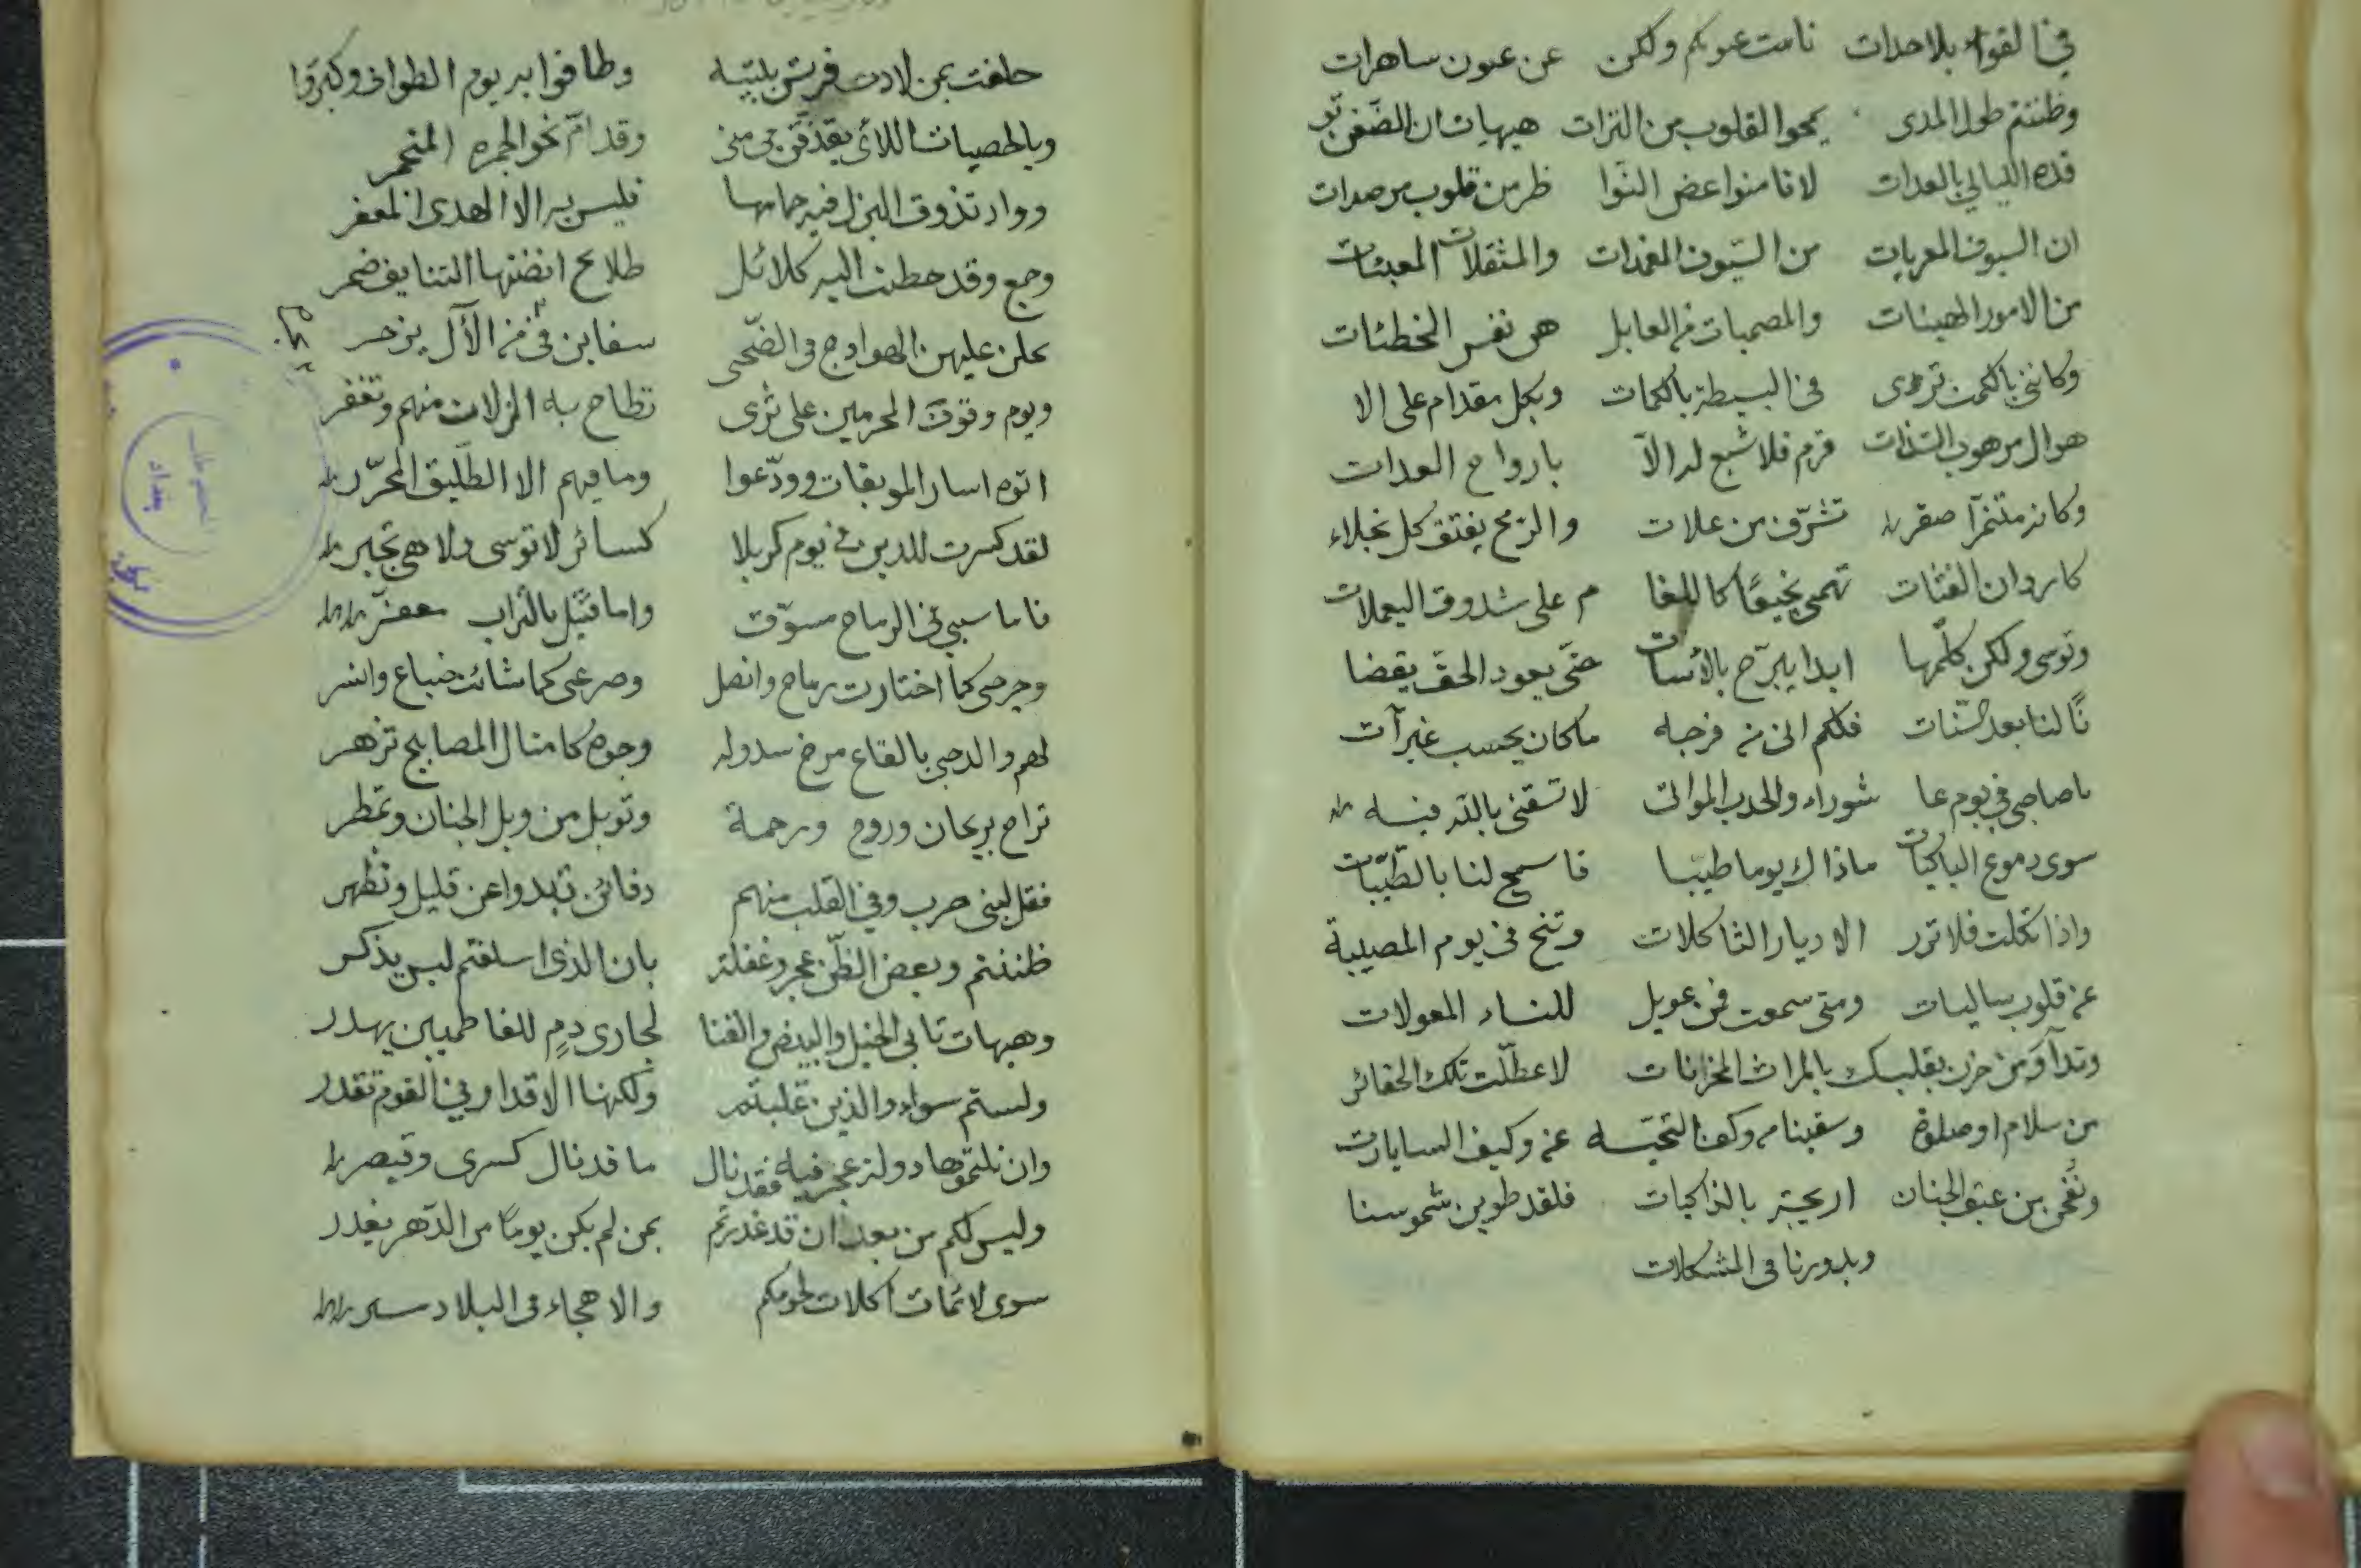 في القواء بلا حدات نامت عيونكم ولكن عن عيون ساهرات
وظننتم طول المدى يمحوا القلوب من الترات هيهات ان الضغن تو
قده الليالي بالعدات لا تامنوا غض النوا ظر من قلوب مرصدات
ان السيوف المعريات من السيوف المغمدات والمثقلات المعيئات
من الامور الهينات والمصميات من العابل هن نفس المخطئات
وكانني بالكمت تردى في البسيطة بالكمات وبكل مقدام على الا
هوال مرهوب الشذات قرم فلا شبع له الا بارواح العدات
وكانه متنمرا صقر تشرف من علات والرمح يفتق كل نجلاء
كاردان الفتات تهمى نجيعا كاللغا م على شدوق اليعملات
وتوسى ولكن كلمها ابدا يبرح بالأسات حتى يعود الحق يقضا
نا لنا بعد السنات فلكم اتى من فرجه ما كان يحسب غير آت
يا صاحبي في يوم عا شوراء والحدب الموات لا تسقني بالله فيه
سوى دموع الباكيات ما ذاك يوما طيبا فاسمح لنا بالطيبات
واذا ثكلت فلا تزر الا ديار الثاكلات وتنح في يوم المصيبة
عن قلوب ساليات ومتى سمعت فمن عويل للنساء المعولات
وتداو من حزن بقلبك بالمراث المحزنات لا عطلت تلك الحفائر
من سلام او صلوة وسقينا من وكف التحيه عن وكيف الساريات
ونفحن من عبق الجنان اريجه بالذاكيات فلقد طوين شموسنا
وبدورنا في المشكلات
حلفت بمن لاذت قريش ببيته وطافوا به يوم الطواف وكبروا
وبالحصيات اللائى يقذفن في منى وقد ام نحو الجمرة المتجمر
وواد تذوق البزل فيه حمامها فليس به الا الهدى المعفر
وجمع وقد حطت اليه كلاكل طلايح انضتها التنايف ضمر
يحلن عليهن الهوادج في الضحى سفاين في يم من الآل يزخر
ويوم وقوف المحرمين على ثرى تطاح به الزلات منهم وتغفر
اتوه اسار الموبقات وودعوا وما فيهم الا الطليق المحرر
لقد كسرت للدين في يوم كربلا كسائر لا توسى ولا هى تجبر
فاما سبي في الرماح مسوق واما قتيل بالتراب معفر
وجرحى كما اختارت رماح وانصل وصرعى كما شائت ضباع وانسر
لهم والدجى بالقاع مرخ سدوله وجوه كامثال المصابيح تزهر
تراح بريحان وروح ورحمة وتوبل من وبل الجنان وتمطر
فقل لبنى حرب وفي القلب منهم دفائن تبدوا عن قليل وتظهر
ظننتم وبعض الظن عجز وغفلة بان الذى اسلفتم ليس يذكر
وهيهات تابى الخيل والبيض والقنا لجارى دم للفاطميين يهدر
ولستم سواء والذين غلبتم ولكنها الاقدار في القوم تقدر
وان نلتموها دولة عجرفيه فقد نال ما قد نال كسرى وقيصر
وليس لكم من بعد ان قد غدرتم بمن لم يكن يوما من الدهر يغدر
سوى لائمات آكلات لحومكم والا هجاء في البلاد مسير